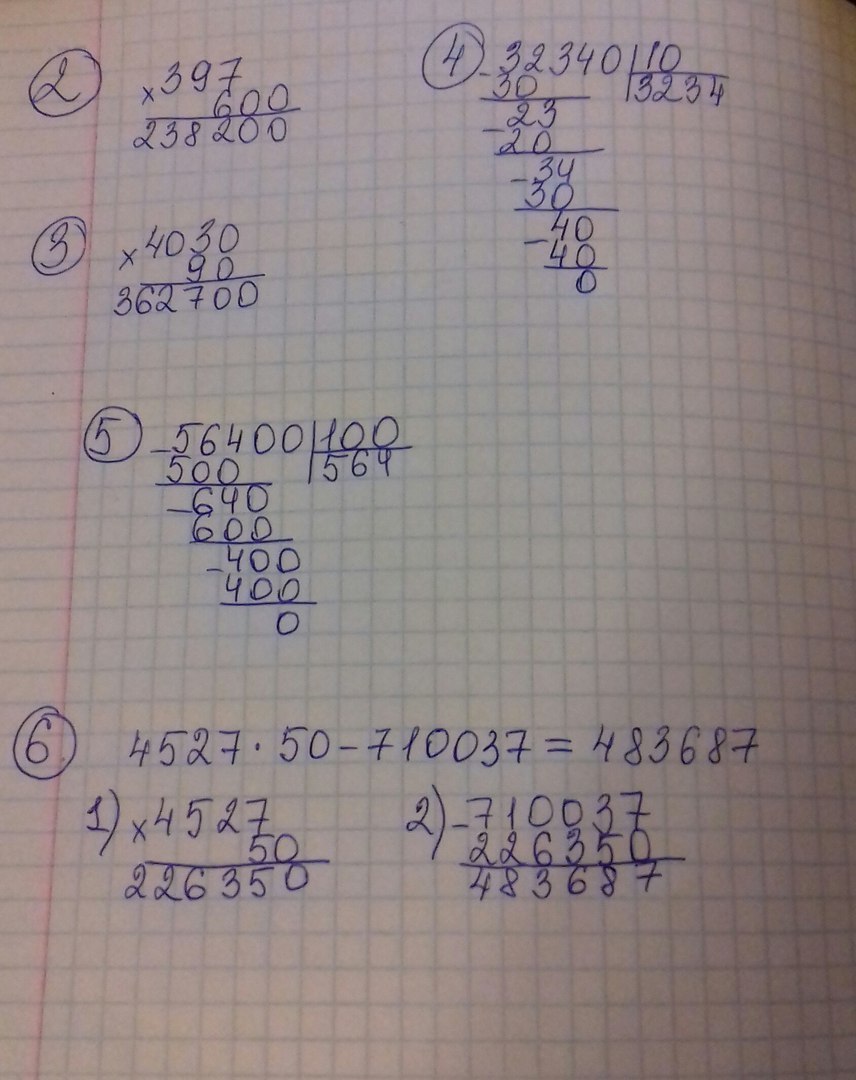 2
×397
600
238200
3
×4030
90
362700
4
-32340|10
30 |3234
-23
20
-34
30
-40
40
0
5
-56400|100
500 |564
-640
600
-400
400
0
6
4527·50-710037=483687
1) ×4527
50
226350
2) -710037
226350
483687